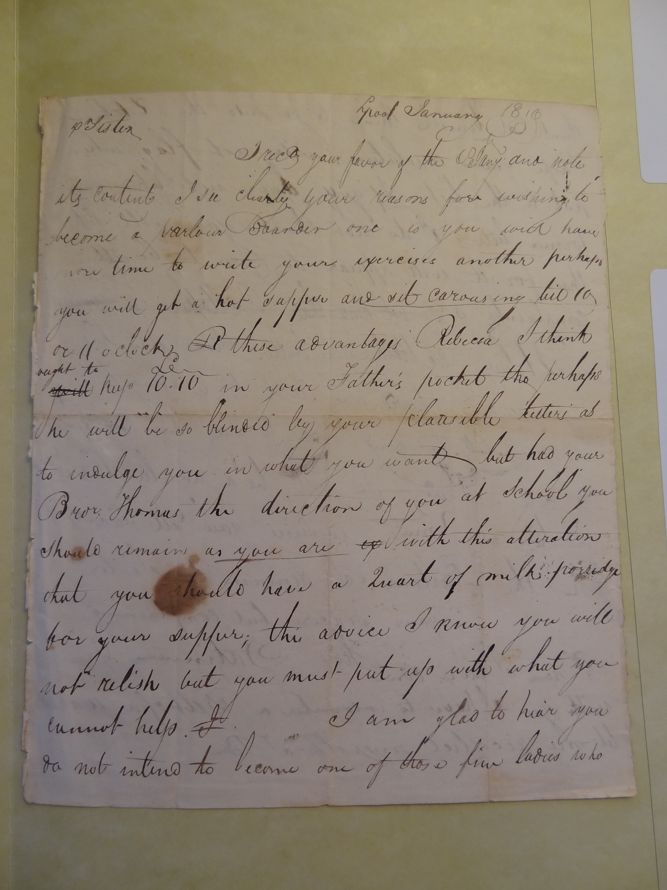 Lpool January 1818
Dr Sister
I recd your favor of the & note
its contents I see clearly your reasons for wishing to
become a Parlour Boarder one is you will have
more time to write your exercises another perhaps
you will get a hot supper and sit carousing till 10
or 11 oClock, these advantages Rebecca I think
ought to
will keep 10.10 in your Father's pocket tho perhaps
he will be so blinded by your plausible letters as
to indulge you in what you want but had your
Bror. Thomas the direction of you at School you
should remain as you are with this alteration
that you should have a Quart of milk porridge
for your supper; this advice I know you will
not relish but you must put up with what you
cannot help. I am glad to hear you
do not intend to become one of those fine ladies who